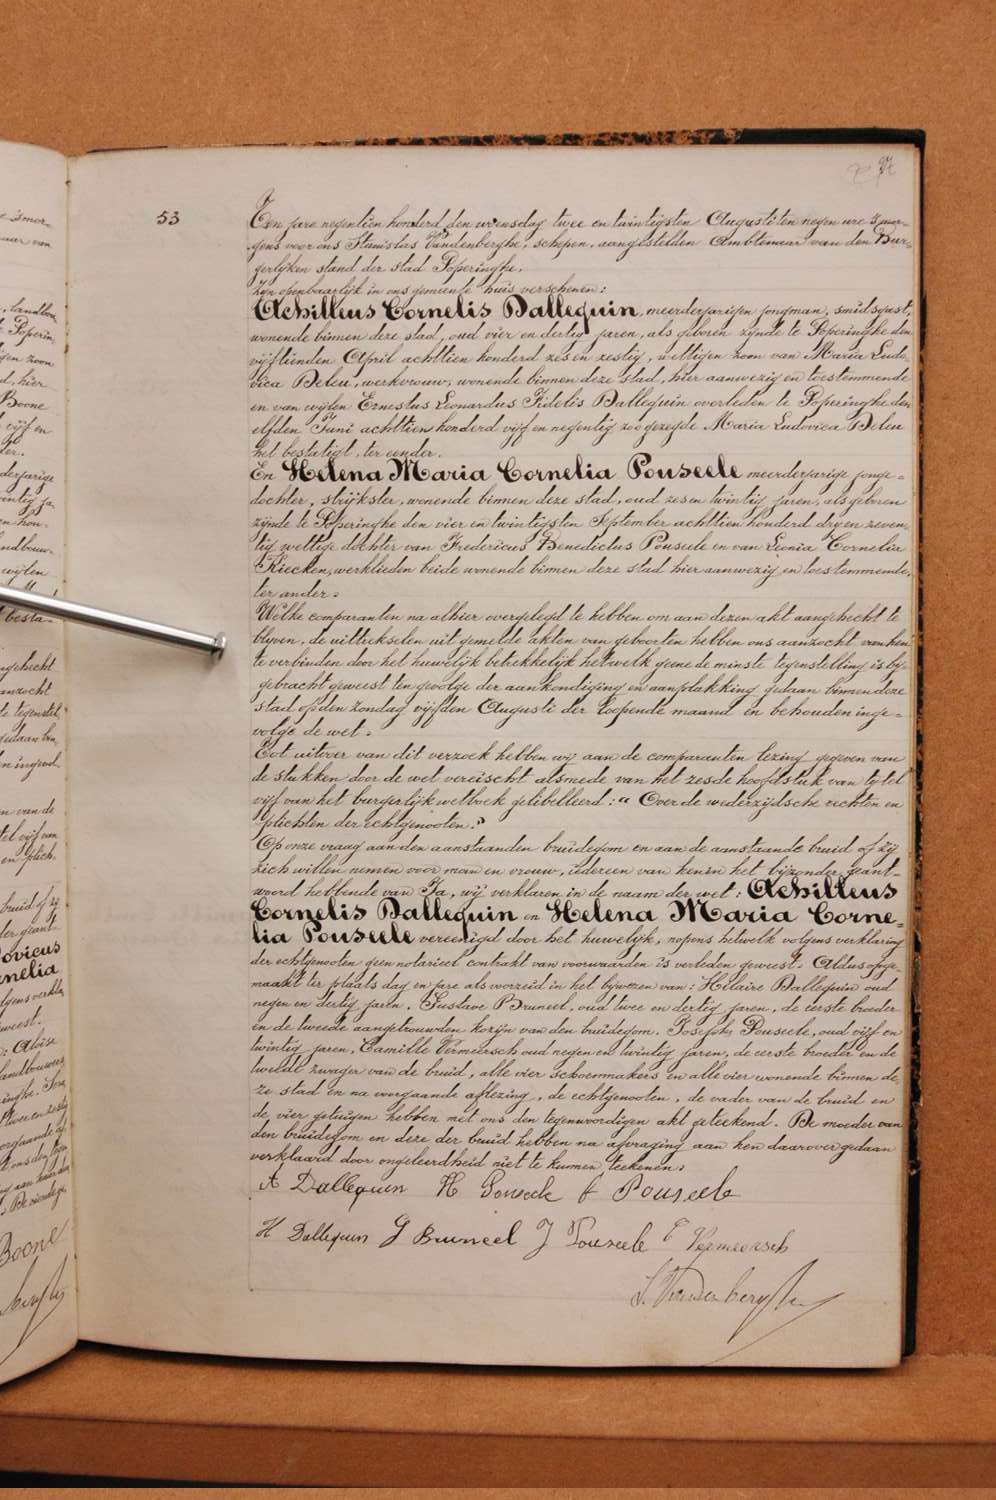 27
53
Ten jare negentien honderd den woensdag twee en twintigsten Augusti ten negen ure 's mor-
gens voor ons Stanislas Vandenberghe, schepen, aangestelden Ambtenaar van den Bur-
gerlyken stand der stad Poperinghe,
zyn openbaarlijk in ons gemeente huis verschenen:
Achilleus Cornelis Dallequin, meerderjarigen jongman, smidsgast,
wonende binnen deze stad, oud vier en dertig jaren, als geboren zynde te Poperinghe den
vijftienden April achttien honderd zes en zestig, wettigen zoon van Maria Ludo
vica Deleu, werkvrouw, wonende binnen deze stad, hier aanwezig en toestemmende
en van wylen Ernestus Leonardus Fidelis Dallequin overleden te Poperinghe den
elfden Juni achttien honderd vijf en negentig zoo gezegde Maria Ludovica Deleu
het bestatigt, ter eender.
En Helena Maria Cornelia Pouseele meerderjarige jonge-
dochter, strijkster, wonende binnen deze stad, oud zes en twintig jaren, als geboren
zijnde te Poperinghe den vier en twintigsten September achttien honderd dry en zeven-
tig wettige dochter van Fredericus Benedictus Pouseele en van Leonia Cornelia
Kiecken, werklieden beide wonende binnen deze stad hier aanwezig en toestemmende,
ter ander.
Welke comparanten na alhier overgelegd te hebben om aan dezen akt aangehecht te
blyven, de uittrekselen uit gemelde akten van geboorten hebben ons aanzocht van hen
te verbinden door het huwelijk betrekkelijk hetwelk geene de minste tegenstelling is by-
gebracht geweest ten gevolge der aankondiging en aanplakking gedaan binnen deze
stad op den zondag vijfden Augusti der loopende maand en behouden inge-
volge de wet.
Tot uitvoer van dit verzoek hebben wij aan de comparanten lezing gegeven van
de stukken door de wet vereischt alsmede van het zesde hoofdstuk van tytel
vijf van het burgerlijk wetboek gelibelleerd: " Over de wederzijdsche rechten en
plichten der echtgenooten."
Op onze vraag aan den aanstaanden bruidegom en aan de aanstaande bruid of zij
zich willen nemen voor man en vrouw, iedereen van hen in het bijzonder geant-
woord hebbende van Ja, wij verklaren in de naam der wet: Achilleus
Cornelis Dallequin en Helena Maria Corne-
lia Pouseele vereenigd door het huwelijk, nopens hetwelk volgens verklaring
der echtgenooten geen notarieel contrakt van voorwaarden is verleden geweest. Aldus opge-
maakt ter plaats dag en jare als voorzeid in het bijwezen van: Hilaire Dallequin oud
negen en dertig jaren, Gustave Bruneel, oud twee en dertig jaren, de eerste broeder
en de tweede aangetrouwden kozijn van den bruidegom. Josephs Pouseele, oud vijf en
twintig jaren, Camille Vermeersch oud negen en twintig jaren, de eerste broeder en de
tweede zwager van de bruid, alle vier schoenmakers en alle vier wonende binnen de-
ze stad en na voorgaande aflezing, de echtgenooten, de vader van de bruid en
de vier getuigen hebben met ons den tegenwoordigen akt geteekend. De moeder van
den bruidegom en deze der bruid hebben na afvraging aan hen daarover gedaan
verklaard door ongeleerdheid niet te kunnen teekenen.
A Dallequin H Pouseele f Pouseele
H Dallequin G Bruneel J Pouseele C Vermeersch
S. Vandenberghe